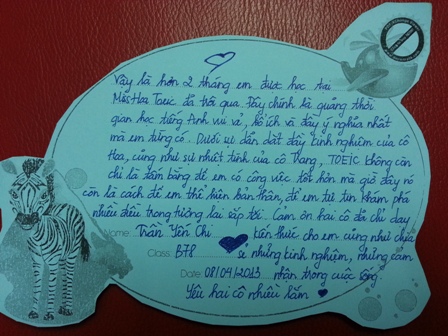 Vậy là hơn 2 tháng em được học tại
Mss Hoa Toeic đã trôi qua. Đây chính là quãng thời
gian học tiếng Anh vui vẻ, bổ ích và đầy ý nghĩa nhất
mà em từng có. Dưới sự dẫn dắt đầy kinh nghiệm của cô
Hoa, cũng như sự nhiệt tình của cô Trang, TOEIC không còn
chỉ là tấm bằng để em có công việc tốt hơn mà giờ đây nó
còn là cách để em thể hiện bản thân, để em tự tin khám phá
nhiều điều trong tương lai sắp tới. Cảm ơn hai cô đã chỉ dạy
Name: Trần Yến Chi kiến thức cho em cũng như chia
Class: B78 sẻ những kinh nghiệm, những cảm
Date: 08/09/2013 nhận trong cuộc sống.
Yêu hai cô nhiều lắm